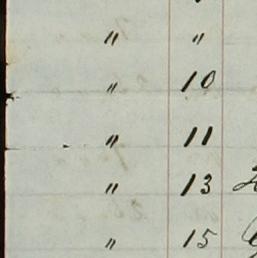 " "
" 10
" 11
" 13
" 15